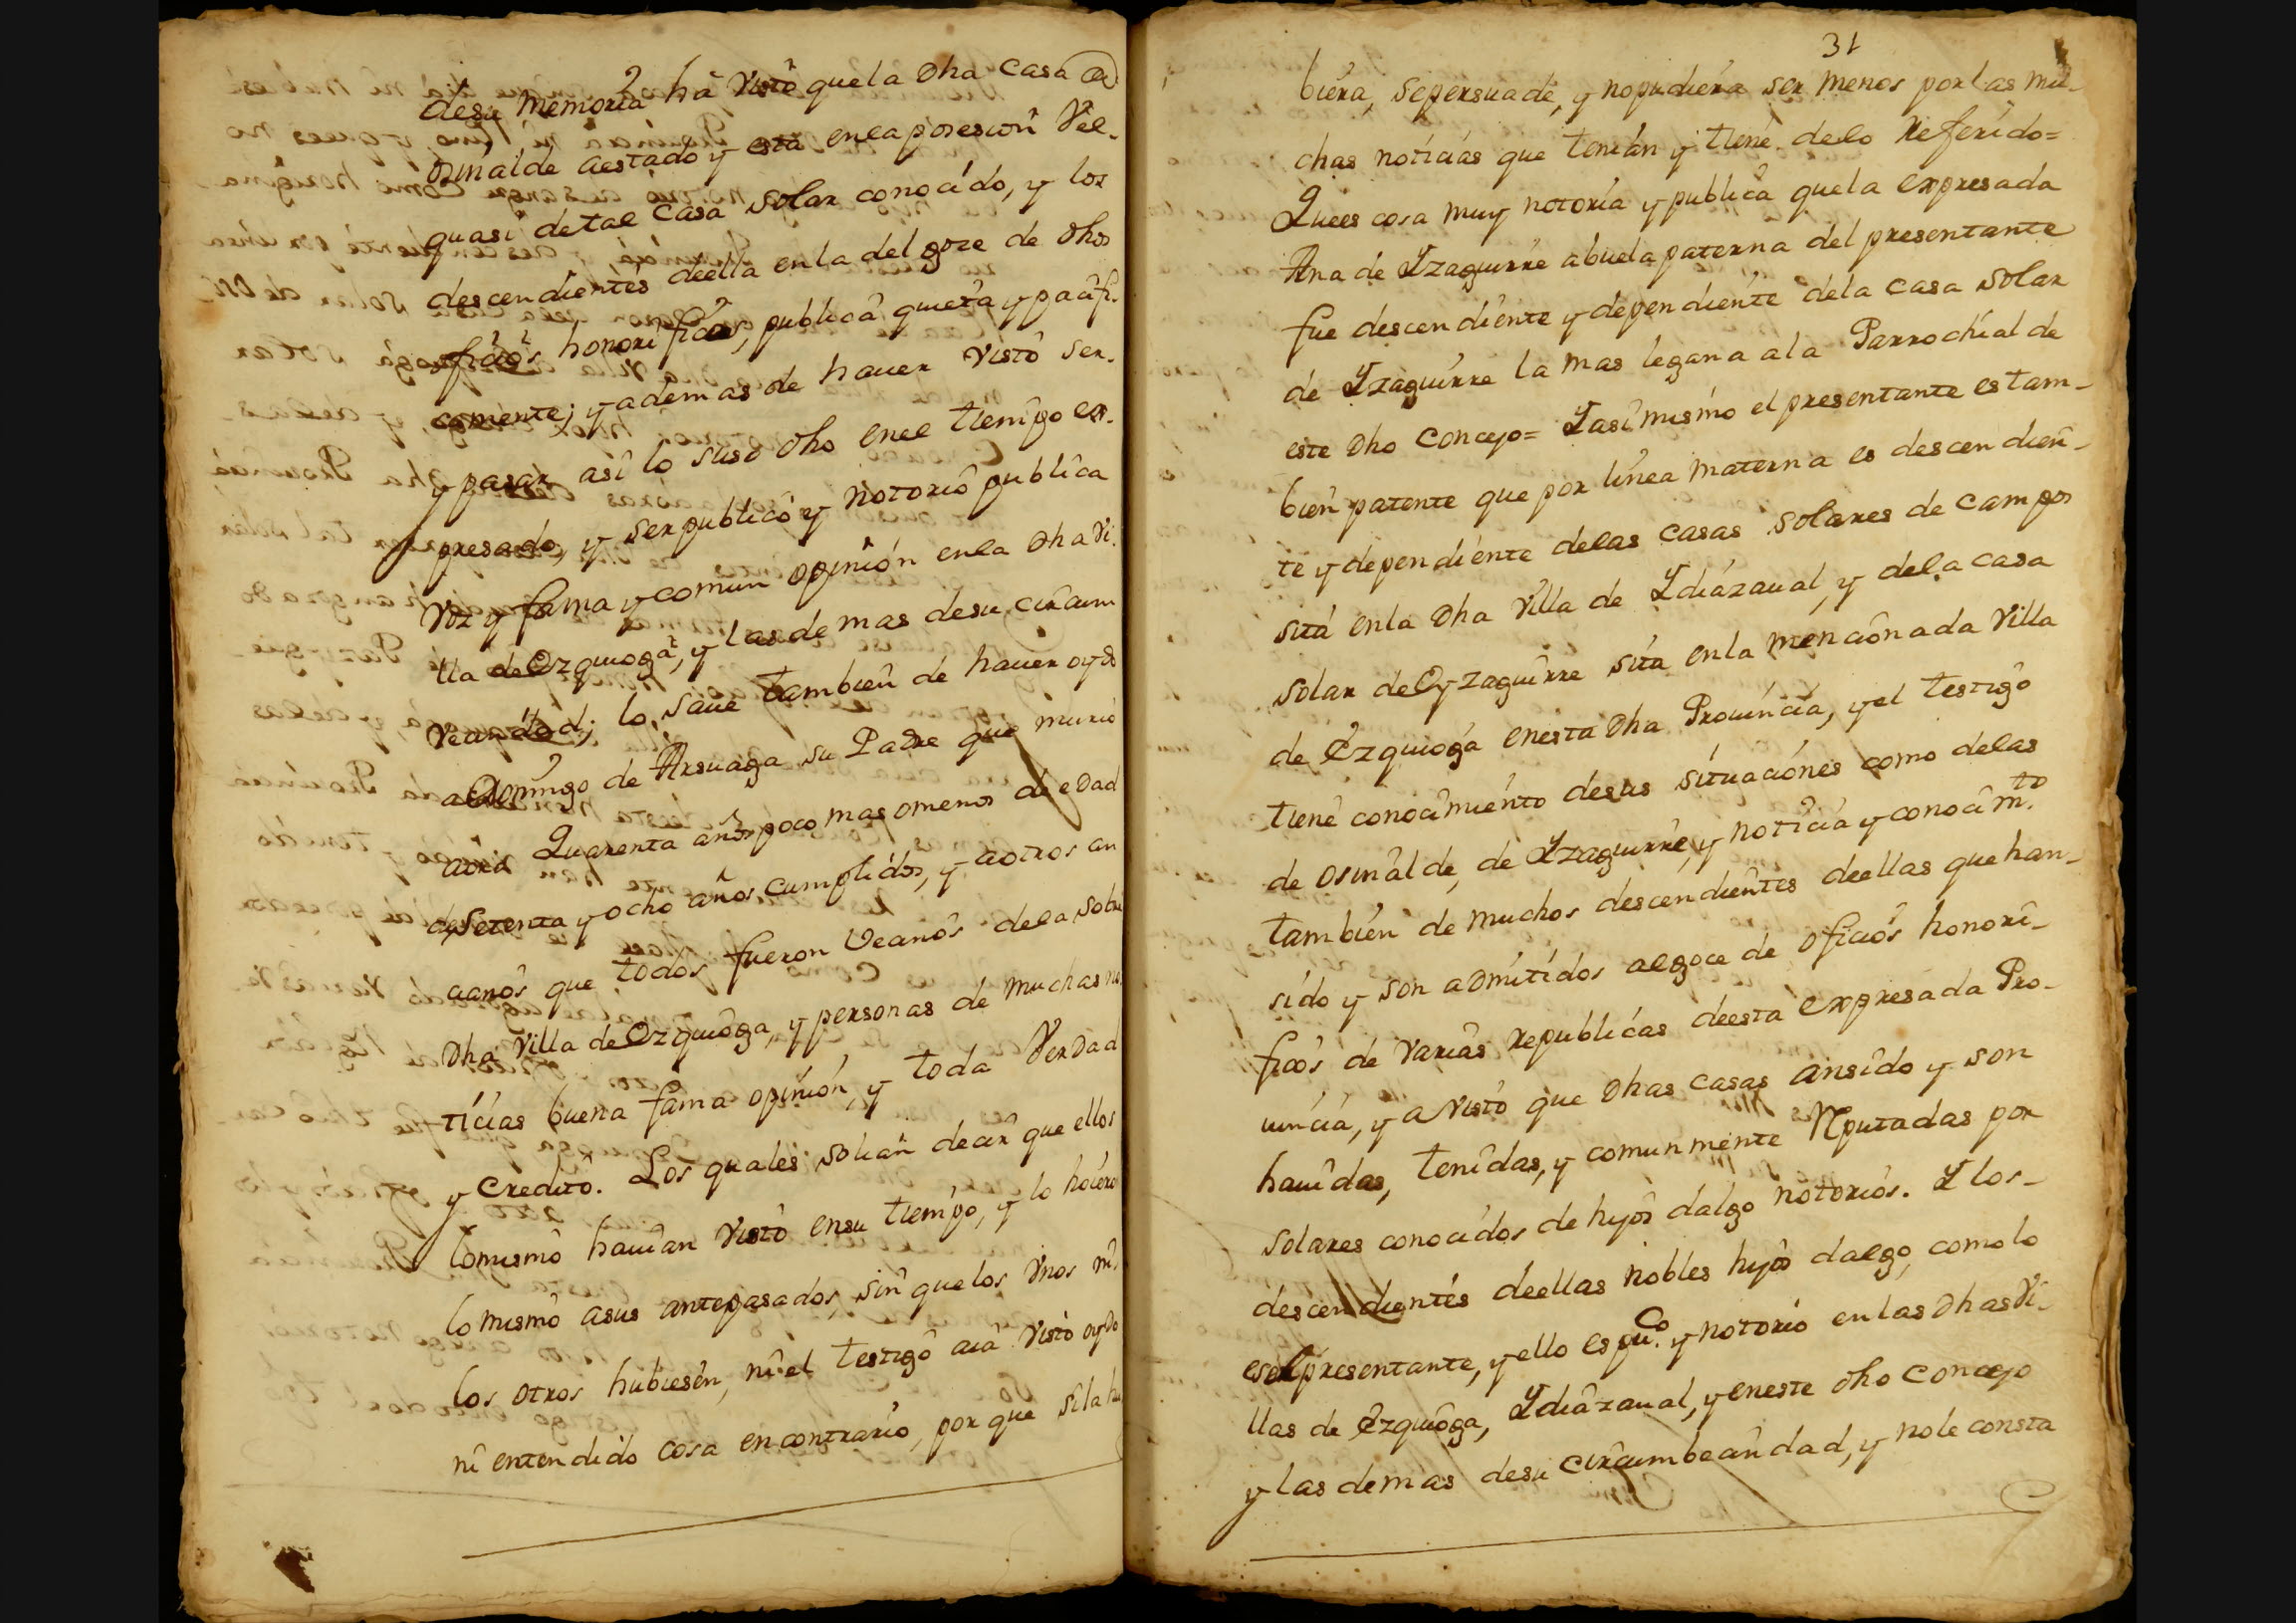 desu memoria hà visto quela Dha casa de
osinalde aestado y està enla posesion Vel-
quasi detal casa solar conocido, y los
descendientes deella enla del goze de dhos
oficios honorificos, publica quieta y pacifi-
camente; y ademas de hauer visto ser-
y pasar asi lo suso dho enel tiempo ex-
presado, y ser publico y notorio publica
voz y fama y comun opinion enla Dha Vi-
lla de Ezquioga, y las demas desu circum
vecindad; lo saue tambien de hauer oydo
a Domingo de Arsuaga su Padre que murio
aora Quarenta años poco mas omenos de edad
de Setenta y ocho años cumplidos, y aotros an
cianos que todos fueron Vecinos dela sobre
Dha Villa de Ezquioga, y personas de muchas no
ticias buena fama opinion, y toda Verdad
y Credito. Los quales solian decir que ellos
lomismo hauian visto ensu tiempo, y lo hoieron
lo mismo asus antepasados, sin quelos Vnos ni
los otros hubiesen, ni el testigo aia visto oydo
ni entendido cosa encontrario, por que sila hu
31
biera, sepersuade, y nopudiera ser menos por las mu-
chas noticias que tenian y tiene delo Referido=
Quees cosa muy notoria y publica quela expresada
Ana de Yzaguirre abuela paterna del presentante
fue descendiente y dependiente dela casa solar
de Yzaguirre la mas legana ala Parrochial de
este Dho Concejo= Yasimismo el presentante es tam-
bien patente que por linea materna es descendien-
te y dependiente delas casas solares de campos
sita enla Dha Villa de Ydiazaual, y dela casa
solar de Oyzaguirre sita enla mencionada Villa
de Ezquioga enesta Dha Prouincia, y el testigo
tiene conocimiento desus situaciones como delas
de osinalde, de Yzaguirre, y noticia y conocim.to
tambien de muchos descendientes deellas que han-
sido y son admitidos algoce de oficios honori-
ficos de varias republicas deesta expresada Pro-
uincia, y a visto que Dhas casas ansido y son
hauidas, tenidas, y comunmente Rputadas por
solares conocidos de hijos dalgo notorios. Y los-
descendientes deellas nobles hijos dalgo, como lo
esel presentante, y ello es pu.co y notorio enlas Dhas Vi-
llas de Ezquioga, Ydiazaual, y eneste dho Concejo
y las demas desu circumbecindad, y nole consta